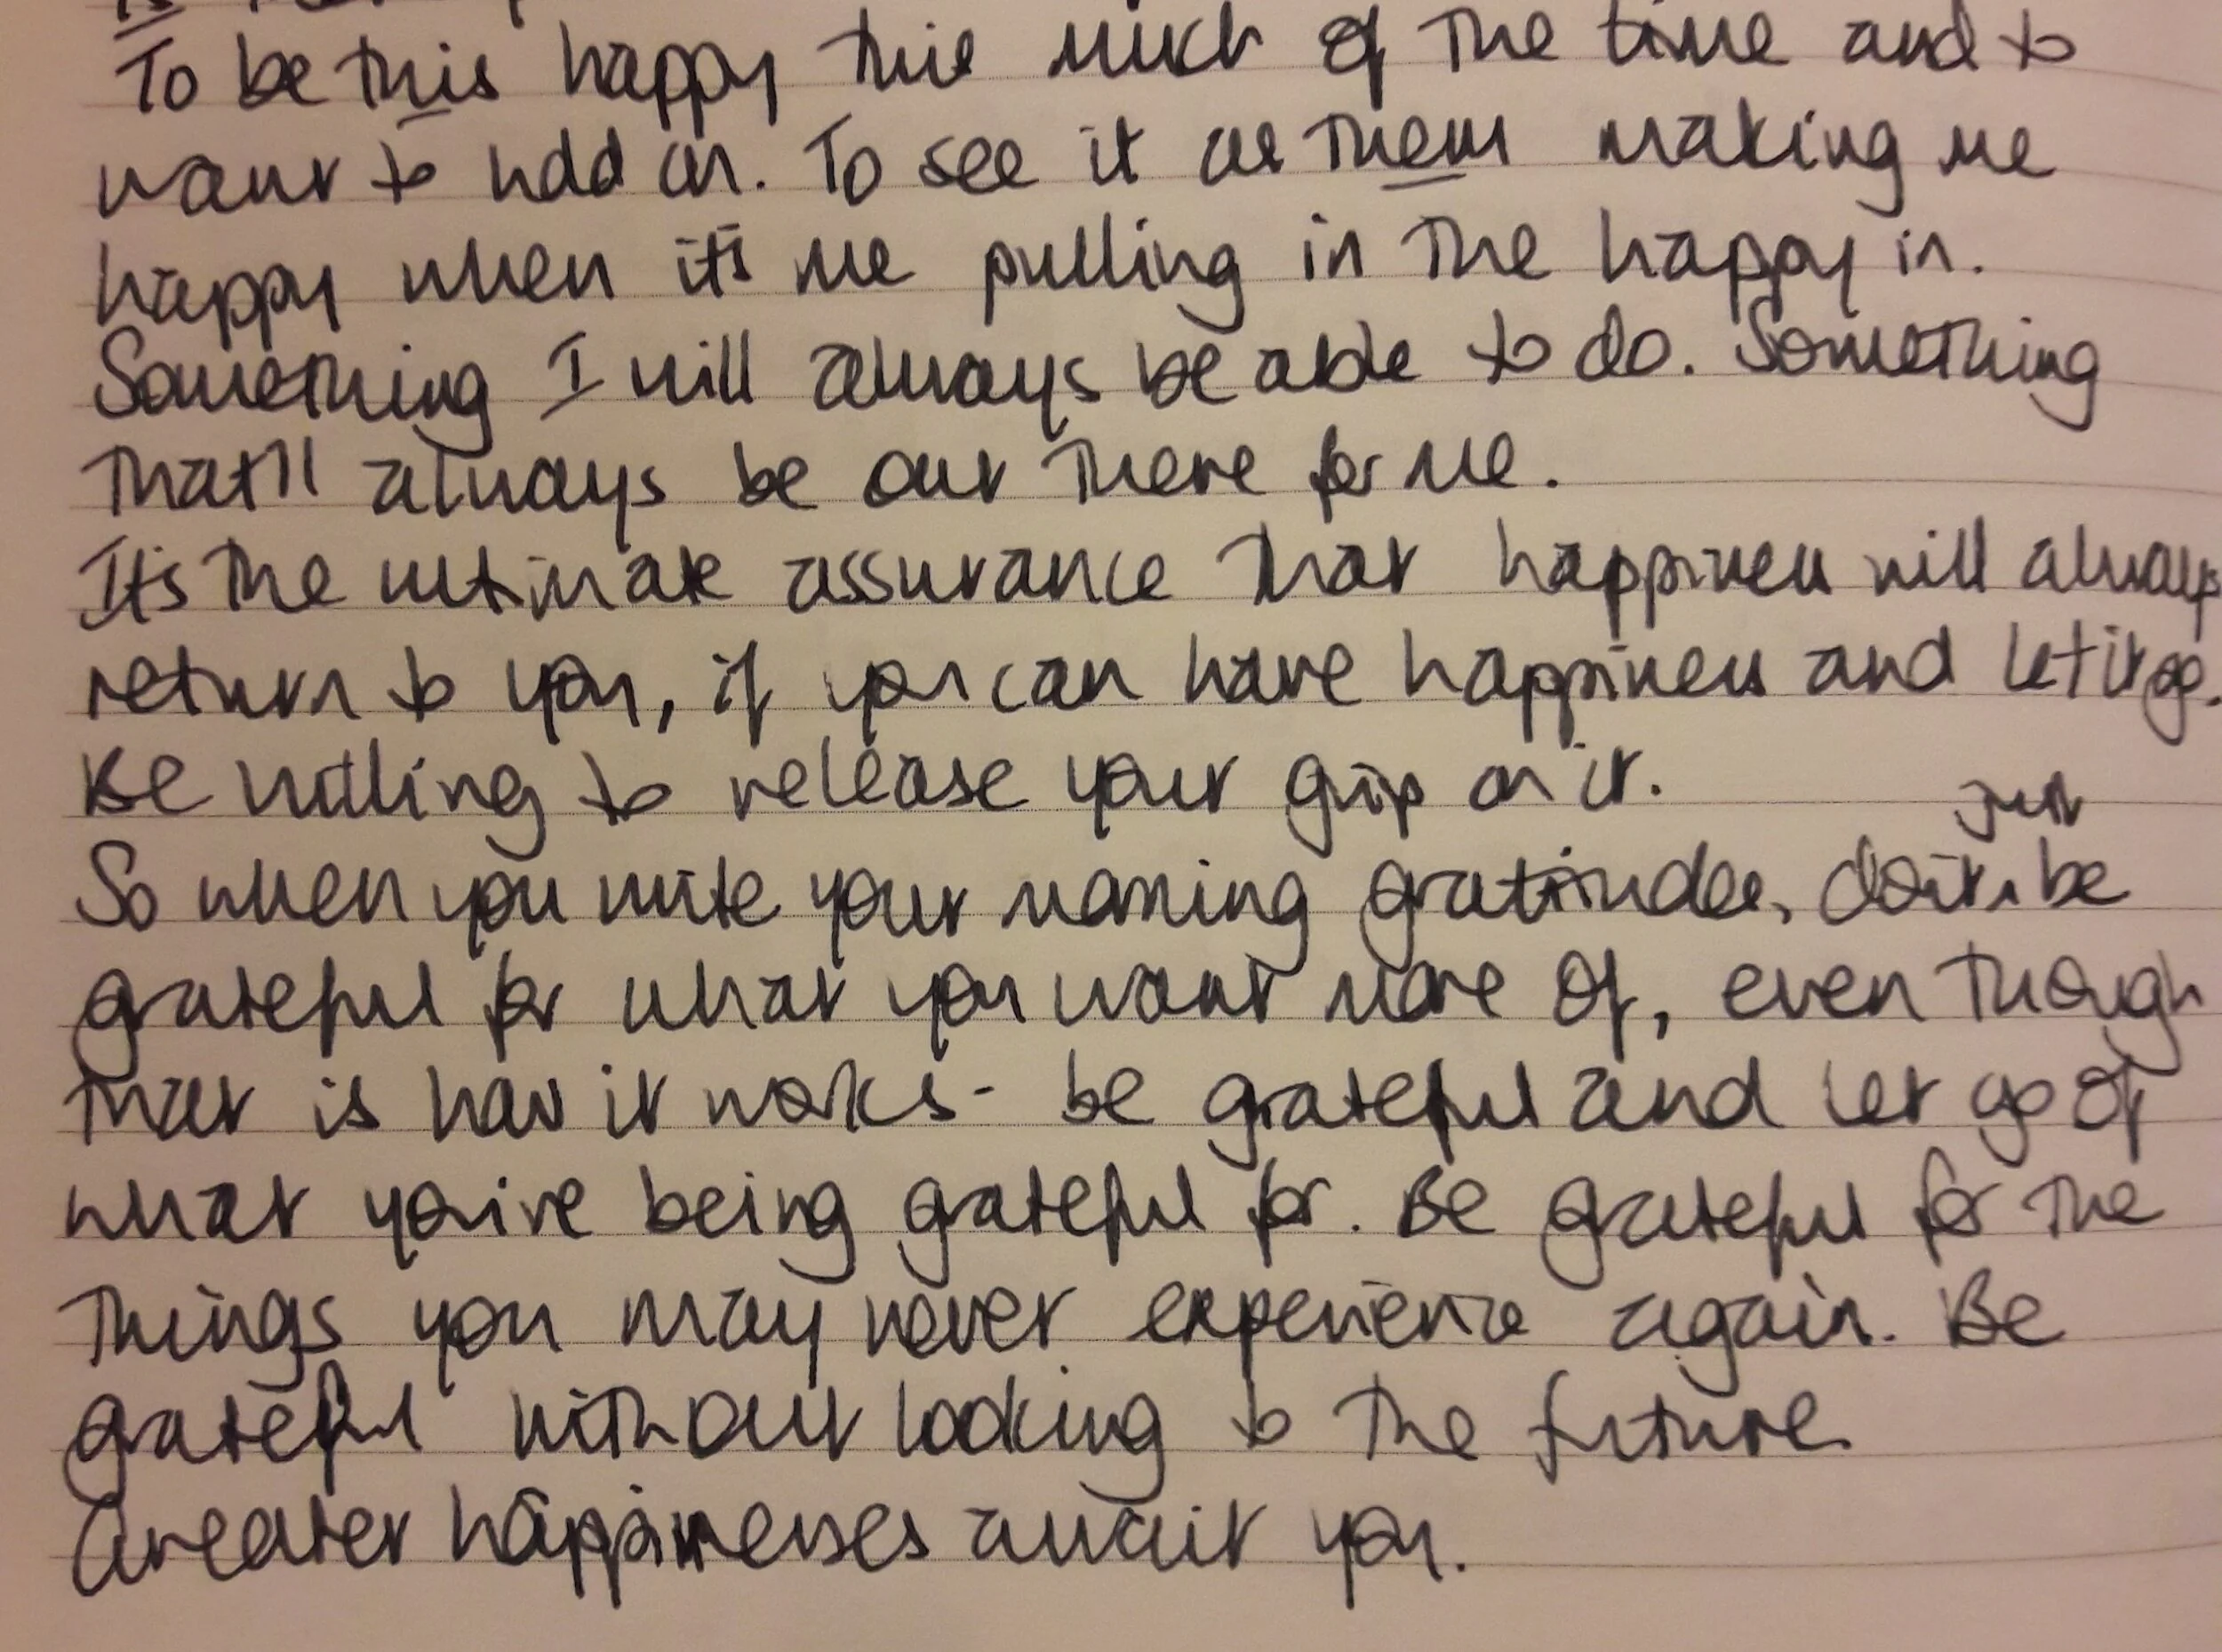 To be this happy this much of the time and to
want to hold on. To see it as them making me
happy when it's me pulling in the happy in.
Something I will always be able to do. Something
that'll always be out there for me.
Its the ultimate assurance that happiness will always
return to you, if you can have happiness and let it go.
Be willing to release your grip on it.
just
So when you write your morning gratitudes, don't be
grateful for what you want more of, even though
that is how it works - be grateful and let go of
what you're being grateful for. Be grateful for the
things you may never experience again. Be
grateful without looking to the future.
Greater happinesses await you.